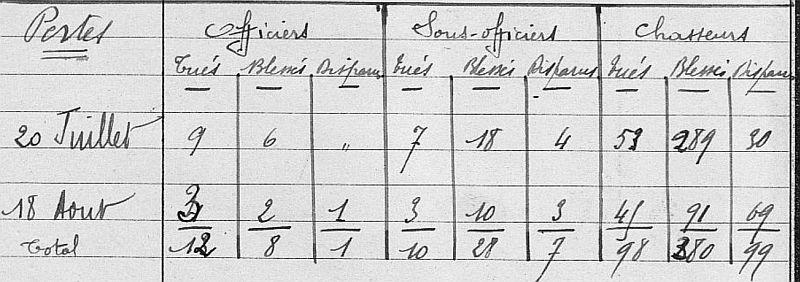 Pertes Officiers Sous-officiers Chasseurs
Tués Blessés Disparus Tués Blessés Disparus Tués Blessés Disparus
20 Juillet 9 6 " 7 18 4 53 289 30
18 Aout 3 2 1 3 10 3 45 91 69
Total 12 8 1 10 28 7 98 380 99